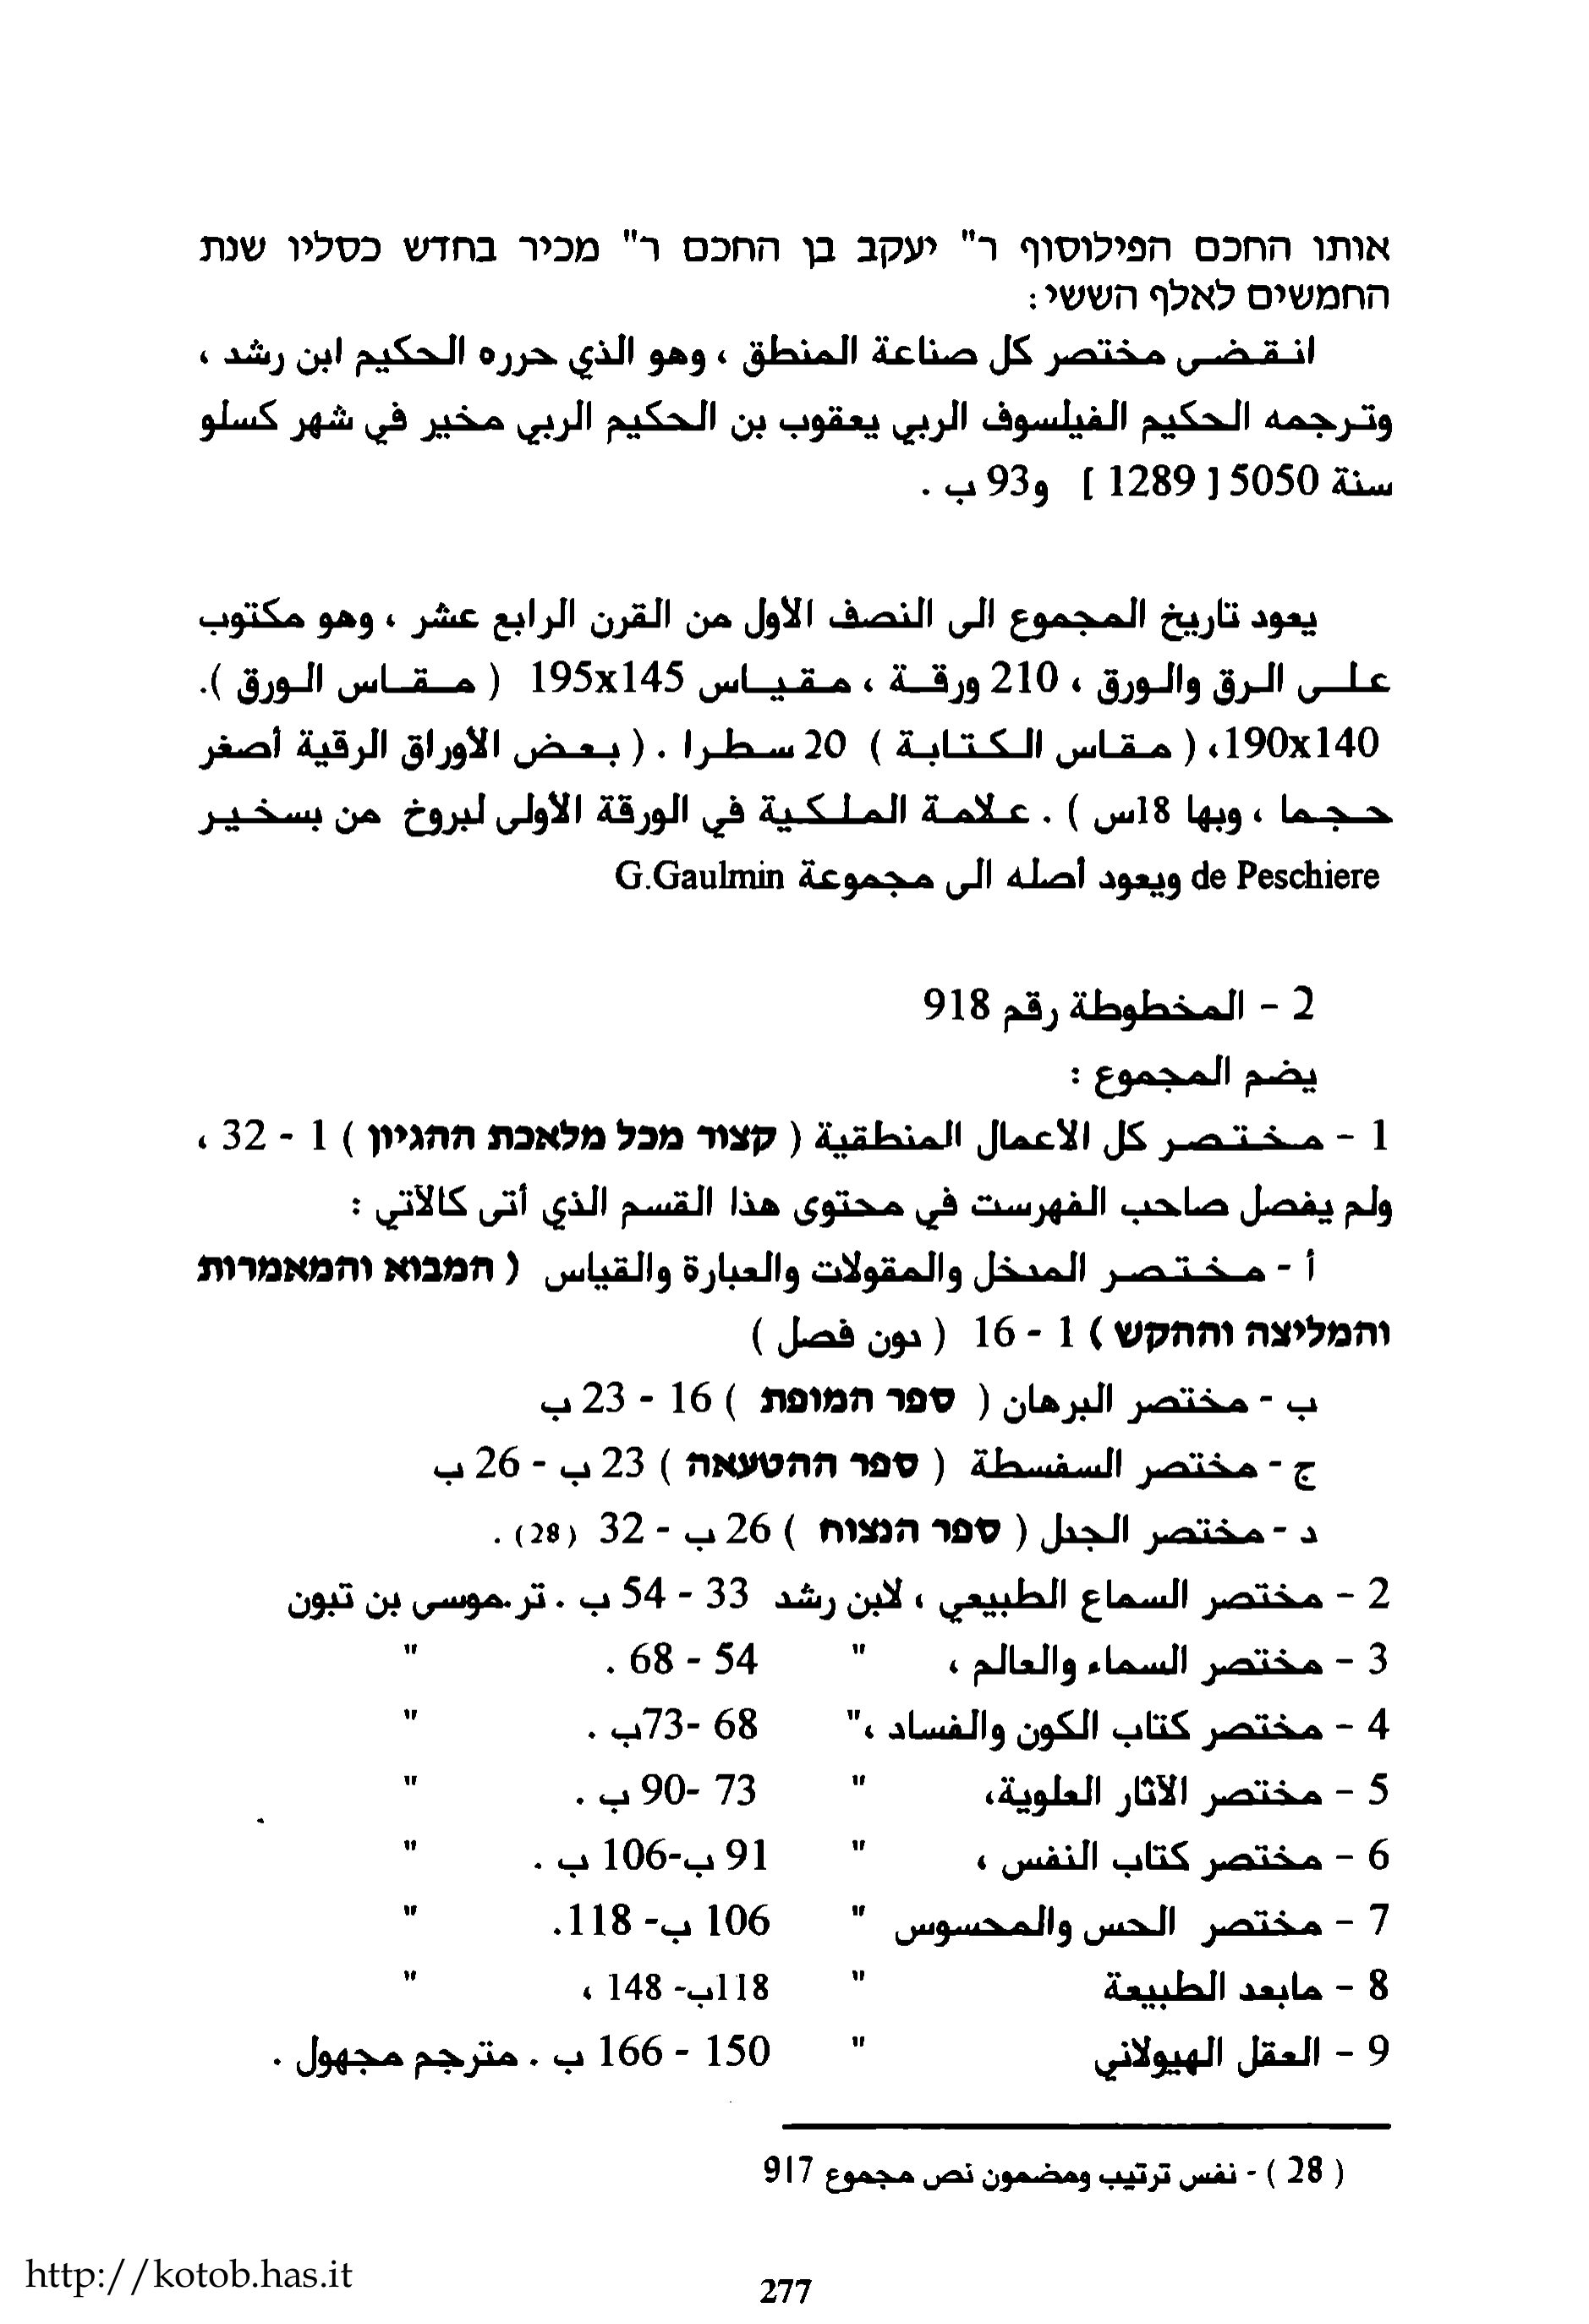 אותו החכם הפילוסוף ר" יעקב בן החכם ר" מכיר בחדש כסליו שנת
החמשים לאלף הששי :
انـقـضـى مختصر كل صناعة المنطق ، وهو الذي حرره الحكيم ابن رشد ،
وتـرجمه الحكيم الفيلسوف الربي يعقوب بن الحكيم الربي مخير في شهر كسلو
سنة 5050 [ 1289 ] و93 ب .
يعود تاريخ المجموع الى النصف الأول من القرن الرابع عشر ، وهو مكتوب
على الرق والورق ، 210 ورقة ، مقياس 195x145 ( مقاس الورق ).
190x140، ( مقاس الكتابة ) 20 سطرا . ( بعض الأوراق الرقية أصغر
حجما ، وبها 18س ) . علامة الملكية في الورقة الأولى لبروخ من بسخير
de Peschiere ويعود أصله الى مجموعة G.Gaulmin
2 - المخطوطة رقم 918
يضم المجموع :
1 - مختصر كل الاعمال المنطقية ( קצור מכל מלאכת ההגיון ) 1 - 32 ،
ولم يفصل صاحب الفهرست في محتوى هذا القسم الذي أتى كالآتي :
أ - مختصر المدخل والمقولات والعبارة والقياس ( המבוא והמאמרות
והמליצה וההקש ) 1 - 16 ( دون فصل )
ب - مختصر البرهان ( ספר המופת ) 16 - 23 ب
ج - مختصر السفسطة ( ספר ההטעאה ) 23 ب - 26 ب
د - مختصر الجدل ( ספר הנצוח ) 26 ب - 32 (28) .
2 - مختصر السماع الطبيعي ، لابن رشد 33 - 54 ب . تر.موسى بن تبون
3 - مختصر السماء والعالم ، " 54 - 68 . "
4 - مختصر كتاب الكون والفساد ،" 68 -73ب . "
5 - مختصر الآثار العلوية، " 73 -90 ب . "
6 - مختصر كتاب النفس ، " 91 ب-106 ب . "
7 - مختصر الحس والمحسوس " 106 ب- 118. "
8 - مابعد الطبيعة " 118ب- 148 ، "
9 - العقل الهيولاني " 150 - 166 ب . مترجم مجهول .
( 28 ) - نفس ترتيب ومضمون نص مجموع 917
http://kotob.has.it
277